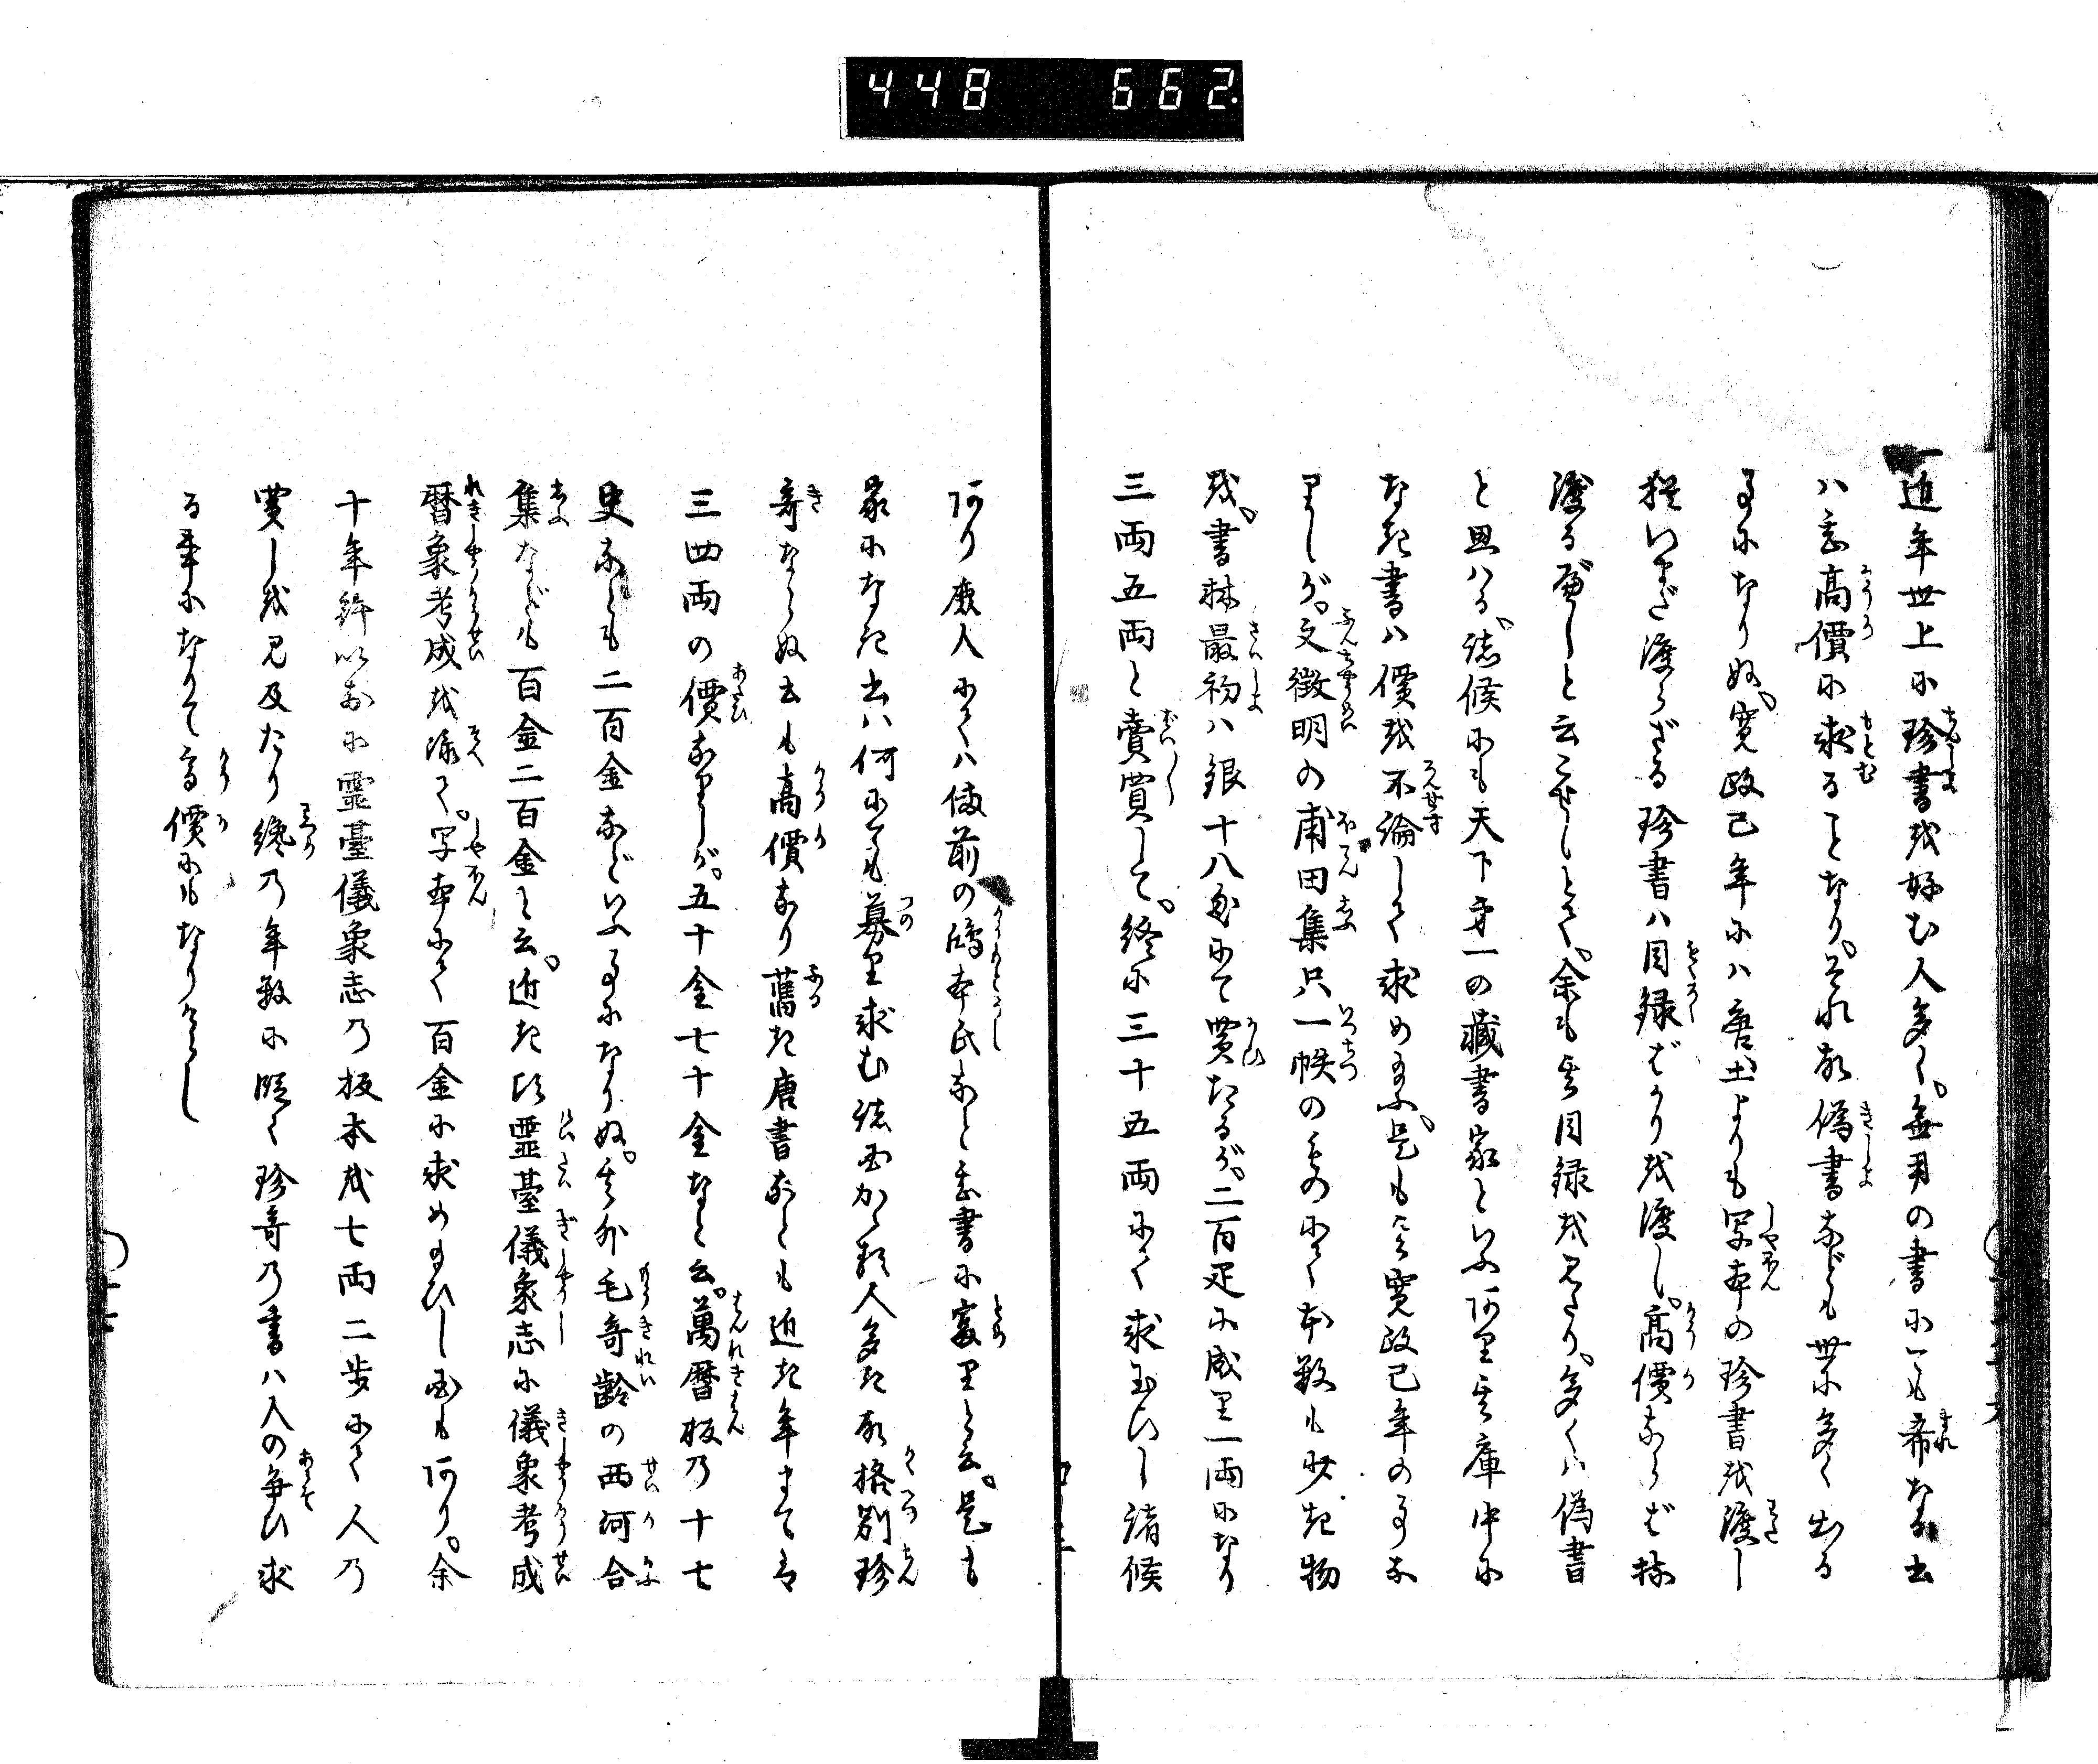 448 662
一近年世上に珍書を好む人多く。無用の書にても希なる書
ハ高價に求ることなり。それ故偽書なども世に多く出る
事になりぬ。寛政己年にハ唐土よりも写本の珍書を渡し
いまだ渡らざる珍書ハ目録ばかりを渡し。高價ならば
渡るべしと云こせしとて。余も其目録を見たり。多くハ偽書
と思ハる。諸侯にも天下第一の藏書家といふあり其庫中に
なき書ハ價を不論して求め給ふ。是も寛政己年の事な
りしが。文徴明の甫田集只一帙のものにて本数も少き物
を。書林最初ハ銀十八匁にて買たるが。二百疋に成り一両になり
三両五両と賣買して。終に三十五両にて求玉ひし諸侯
あり 人にてハ備前の河本氏など書に富りと云。是も
家になき書ハ何にても募り求む諸国かゝる人多き故格別珍
奇ならぬ書も高價なり舊き唐書なども近き年まて
三四両の價なりしが。五十金七十金なと云。萬暦板の十七
史なども二百金などいふ事になりぬ。其外毛奇齢の西河合
集なども百金二百金と云。近き比霊臺儀象志に儀象考成
暦象考成を添て。写本にて百金に求め給ひし国もあり。余
十年許以前に霊臺儀象志の板本を七両二歩にて人の
買しを見及たり纔の年数に 珍奇の書ハ人の争ひ求
る事になりて高價にもなりけらし